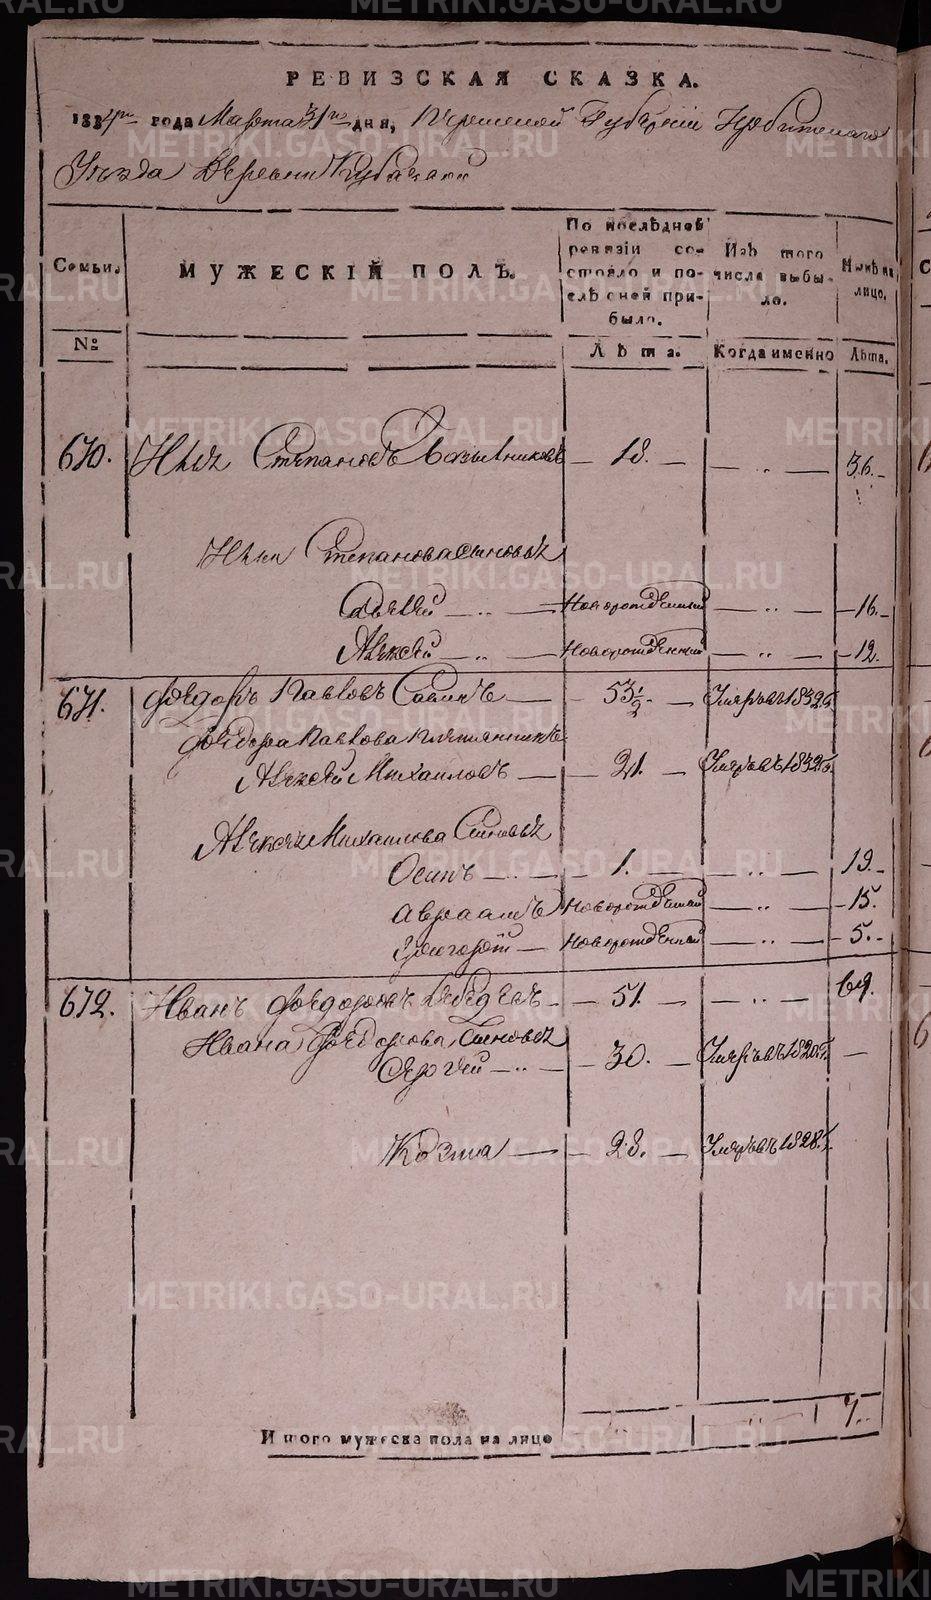 РЕВИЗСКАЯ СКАЗКА.
1834го года Марта 31го дня, Пермской Губернии Ирбитскаго
Уезда Деревни Кубайской
Семьи.
МУЖЕСКІЙ ПОЛЪ.
По послѣдней ревизіи состояло и послѣ оней прибыло.
Изъ того числа выбыло.
Нынѣ на лицо.
№
Лѣта.
Когда именно
Лѣта.
670. Илья Степановъ 18. — „ — 36.
Ильи Степанова сыновья
— „ — Новорожденный — „ — 16.
Алексей — „ — Новорожденный — „ — 12.
671. Федоръ Павловъ Савинъ — 53½ — Умеръ въ 1832 г.
Федора Павлова племянникъ
Алексей Михаиловъ — 21. — Умеръ въ 1832 г.
Алексея Михаилова Сыновья
Осипъ — 1. — „ — 19.
Авраамъ Новорожденный — „ — 15.
Григорей — Новорожденный — „ — 5.
672. Иванъ Федоровъ Лебедевъ — 51. — „ — 69.
Ивана Федорова Сыновья
Сергей — „ — 30. — Умеръ въ 1820 г. —
Козма — 28. — Умеръ въ 1828 г.
Итого мужеска пола на лицо „ „ 7.
METRIKI.GASO-URAL.RU